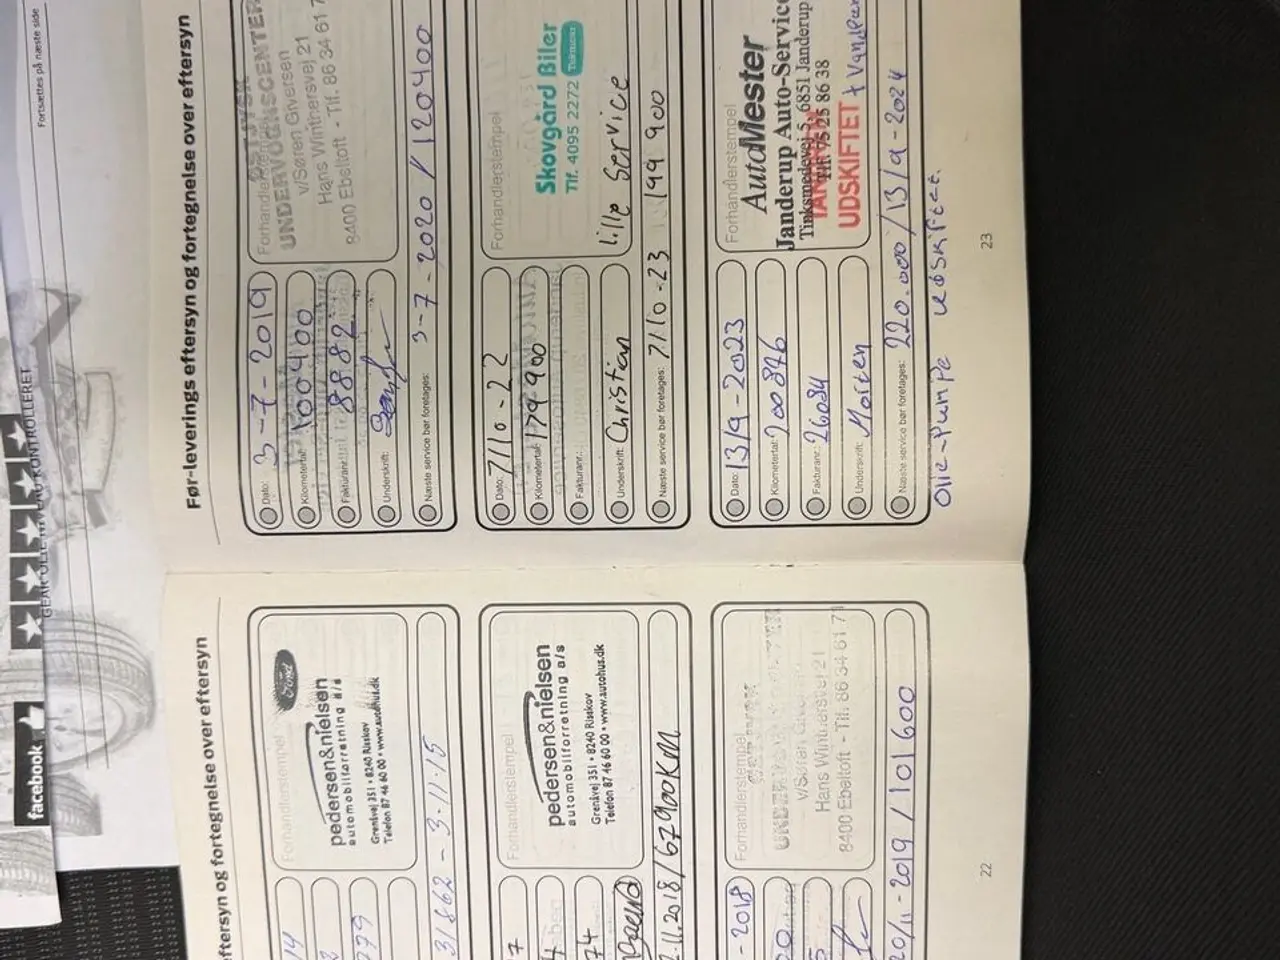 Fortsættes på næste side
GEAR-OLIE NIVEAU KONTROLLERET
facebook
eftersyn og fortegnelse over eftersyn
Forhandlerstempel
Ford
pedersen&nielsen
automobilforretning a/s
Grenåvej 351 • 8240 Risskov
Telefon 87 46 60 00 • www.autohus.dk
31862 - 3-11-15
Forhandlerstempel
pedersen&nielsen
automobilforretning a/s
Grenåvej 351 • 8240 Risskov
Telefon 87 46 60 00 • www.autohus.dk
.11.2018/67900KM
- 2018
Forhandlerstempel
v/Søren Giversen
Hans Winthersvej 21
8400 Ebeltoft - Tlf. 86 34 61 71
20/11-2019/101600
22
Før-leverings eftersyn og fortegnelse over eftersyn
Dato: 3-7-2019
Kilometertal: 100400
Fakturanr.: 8882
Underskrift:
Næste service bør foretages: 3-7-2020/120400
Forhandlerstempel
ØSTJYSK
UNDERVOGNSCENTER
v/Søren Giversen
Hans Winthersvej 21
8400 Ebeltoft - Tlf. 86 34 61 7
Dato: 7/10-22
Kilometertal: 179900
Fakturanr.:
Underskrift: Christian
lille service
Næste service bør foretages: 7/10-23 199900
Forhandlerstempel
Skovgård Biler
Tlf. 4095 2272
Dato: 13/9-2023
Kilometertal: 200846
Fakturanr.: 26084
Underskrift: Morten
Næste service bør foretages: 220.000/13/9-2024
Forhandlerstempel
AutoMester
Janderup Auto-Service
Tinksmedevej 5, 6851 Janderup
Tlf. 75 25 86 38
TANDREM
UDSKIFTET + Vandpum
Olie-Pumpe udskiftet.
23